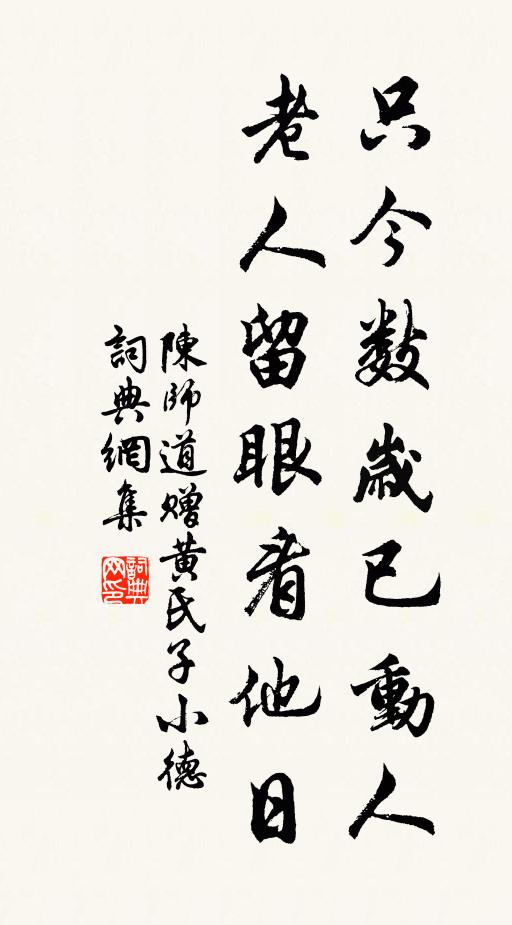 只今數歲已動人
老人留眼看他日
陳師道贈黃氏子小德
詞典網集
詞典網印